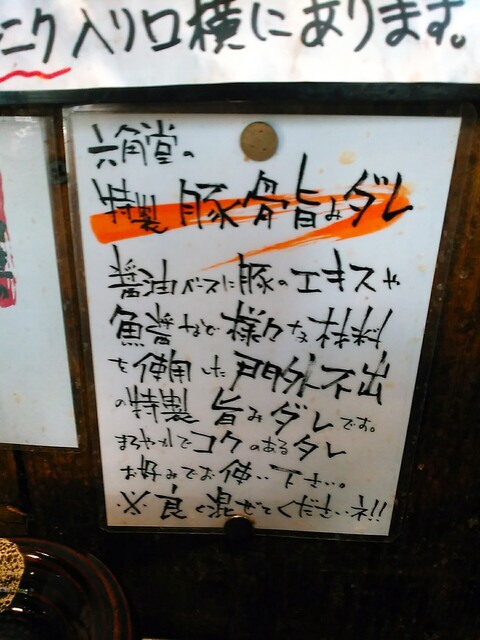 ニク入り口横にあります。
六角堂の
特製 豚骨旨みダレ
醤油ベースに豚のエキスや
魚醤など様々な材料
を使用した門外不出
の特製 旨みダレです。
まろやかでコクのあるタレ
お好みでお使い下さい。
※良く混ぜてくださいネ!!